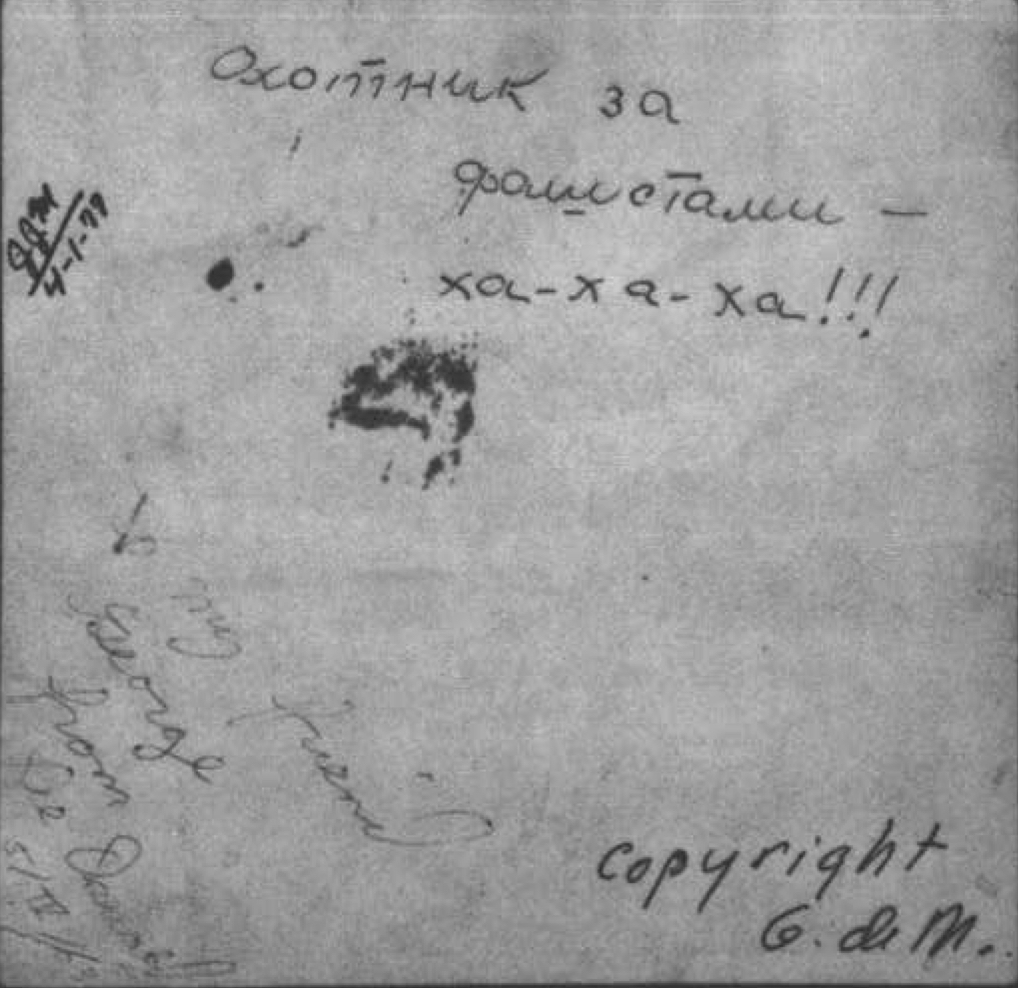 Охотник за
фашистами —
ха-ха-ха!!!
4-1-77
To my friend
George
from
5/IV/63
copyright
G. de M.